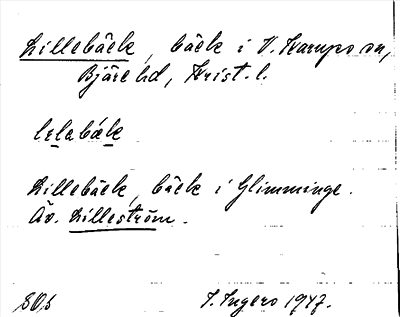 Lillebäck, bäck i V. Karups sn,
Bjäre hd, Krist. l.
lɪlabæk
Lillebäck, bäck i Glimminge.
Äv. Lilleström.
I. Ingers 1947.